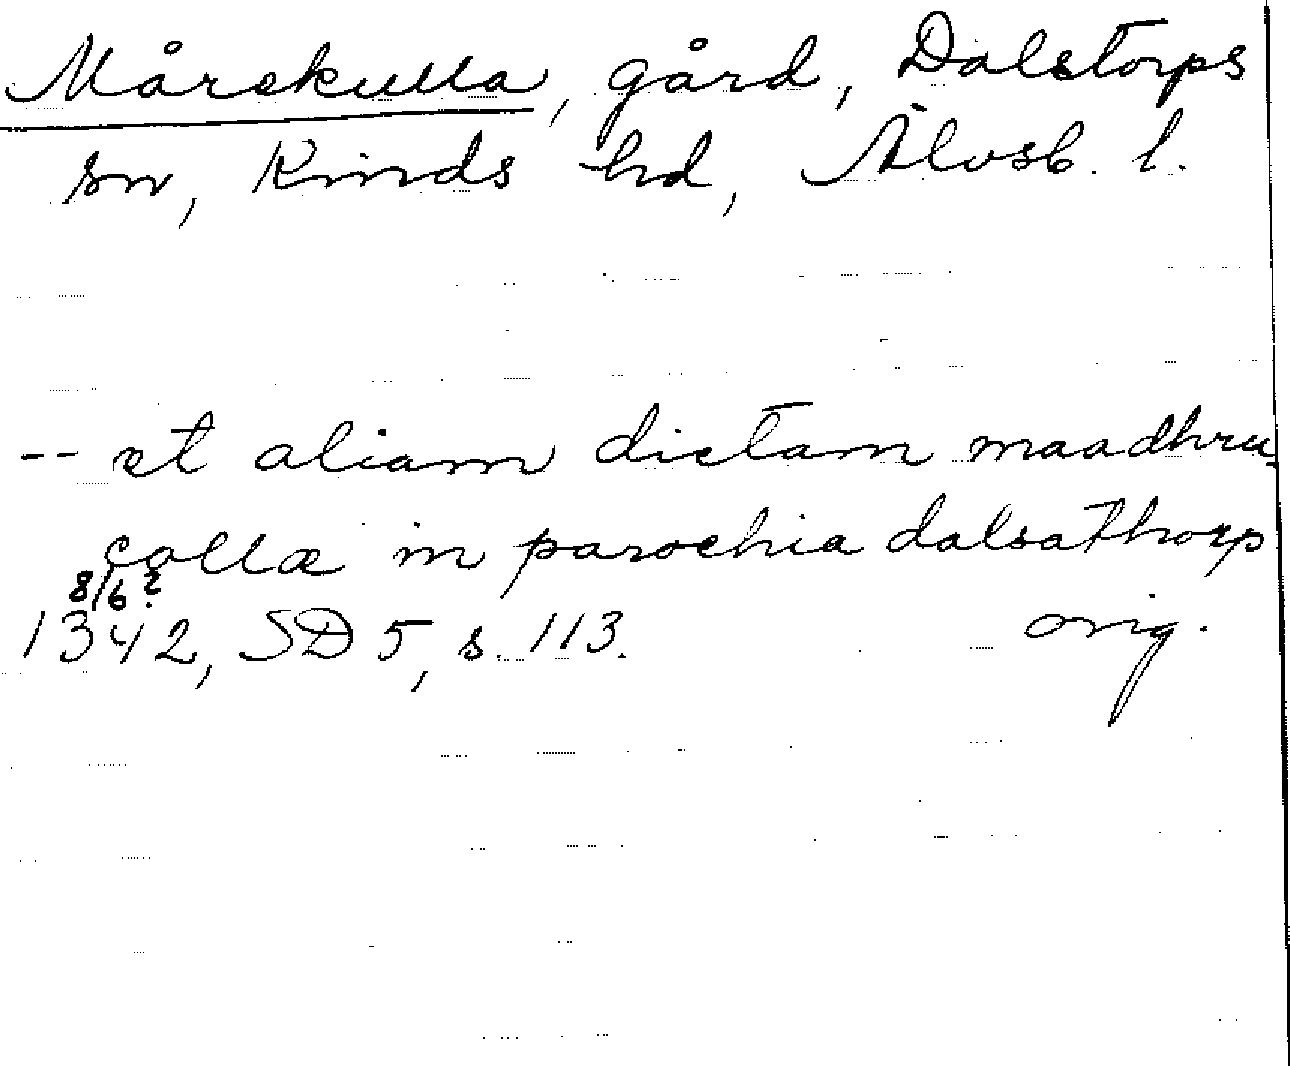 Mårekulla, gård, Dalstorps
sn, Kinds hd, Älvsb. l.
-- et aliam dictam maadhru
collæ in parochia dalsathorp
8/6?
1342, SD 5, s. 113. orig.